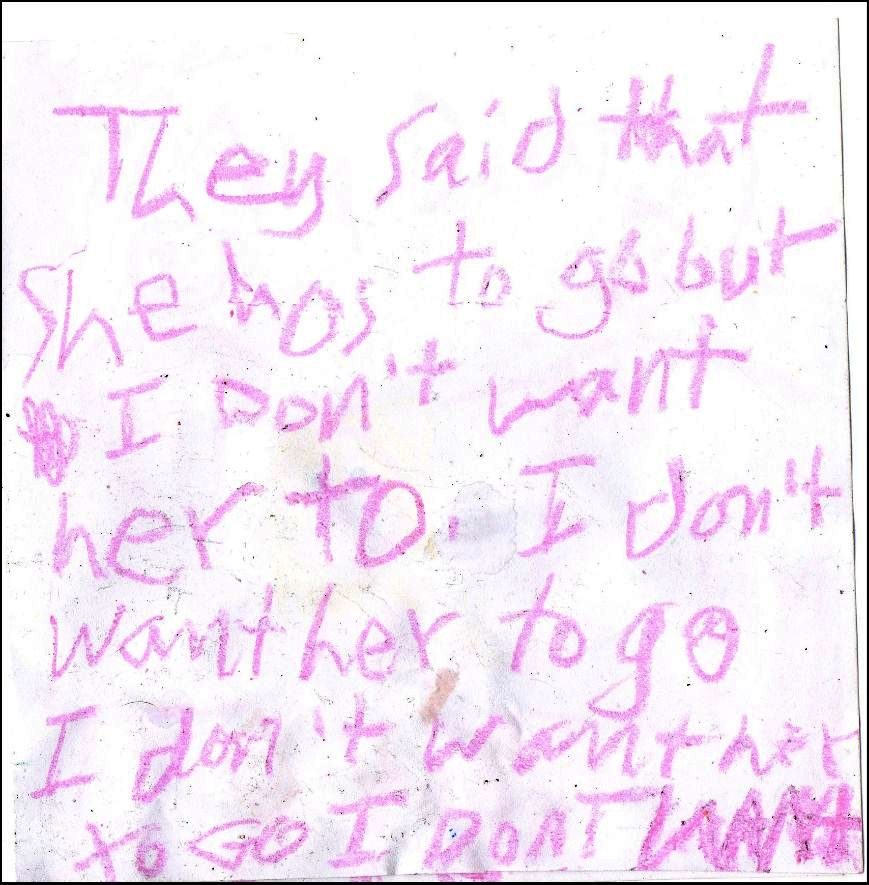 They said that
She has to go but
I Don't want
her to. I don't
want her to go
I don't want her
to GO I DONT WANT